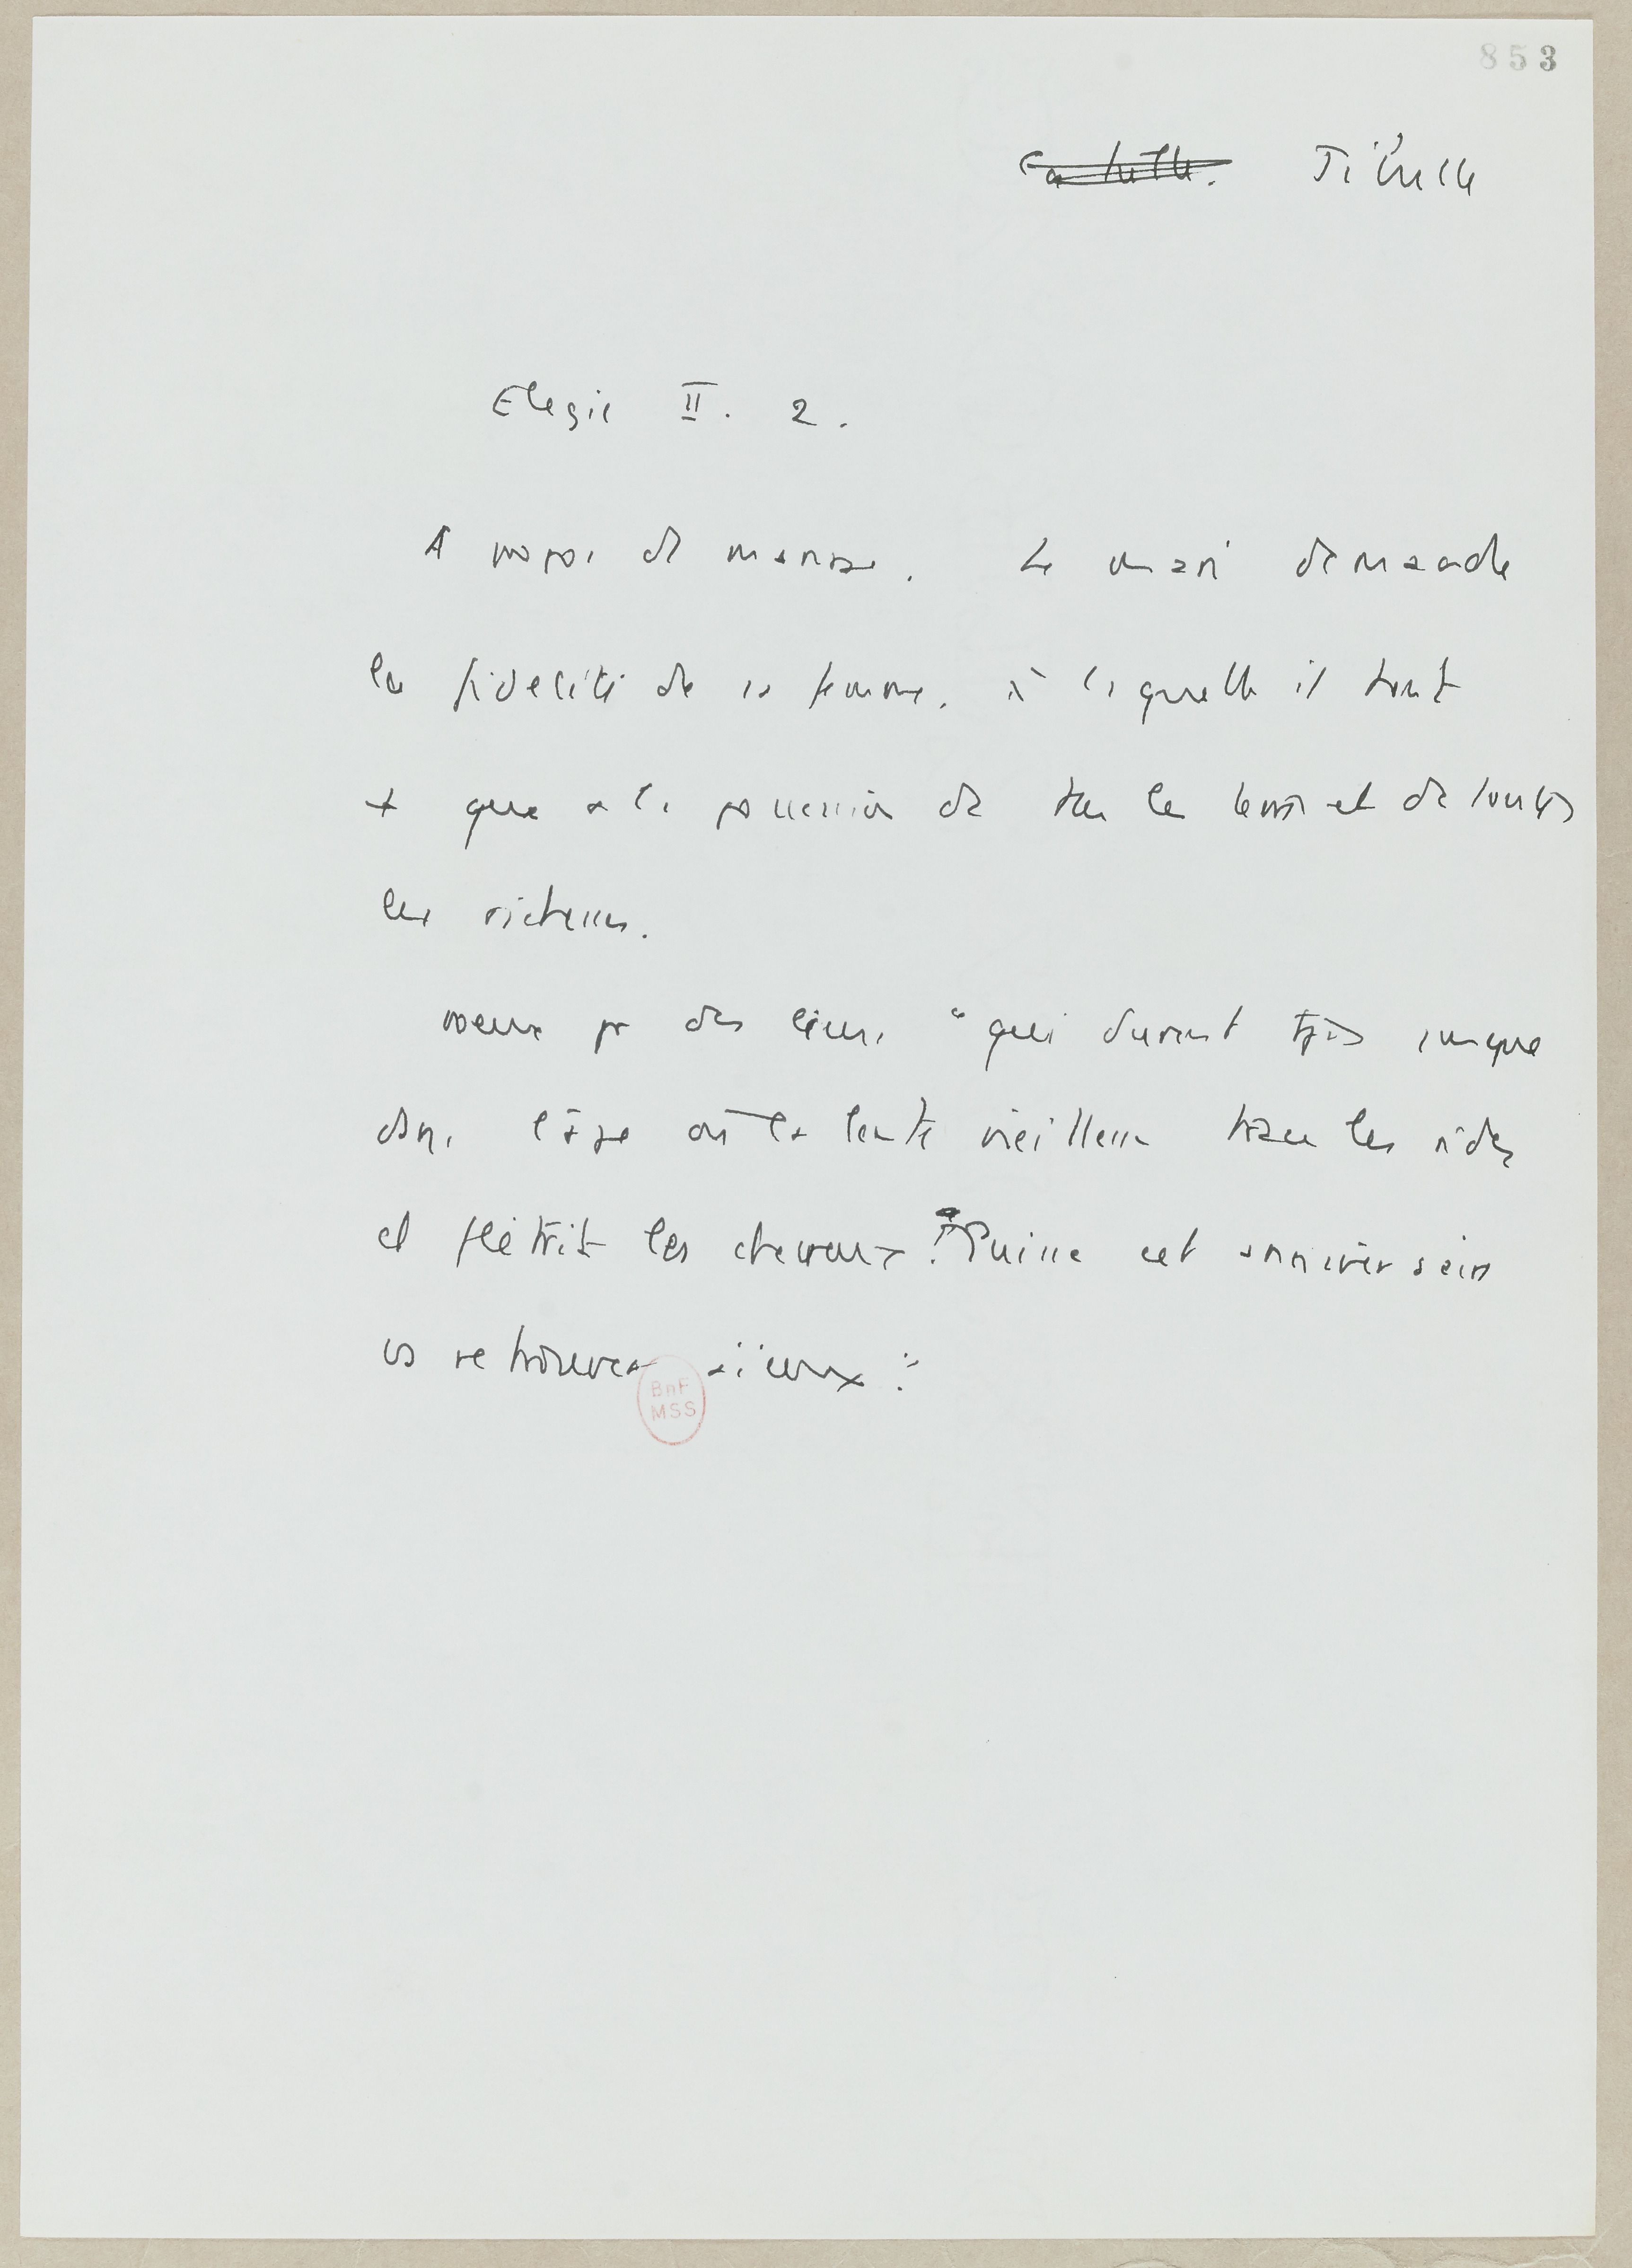 853
Catulle. Tibulle
Elegie II. 2.
A propos du mariage. Le mari demande
la fidélité de sa femme, à laquelle il tient
+ que a la possession de ts les et de toutes
les richesses.
voeux pr des liens "qui durent tjrs jusque
dans l'âge où la lente vieillesse trace les rides
et flétrit les cheveux! Puisse cet anniversaire
vs retrouver aïeux :
BnF
MSS